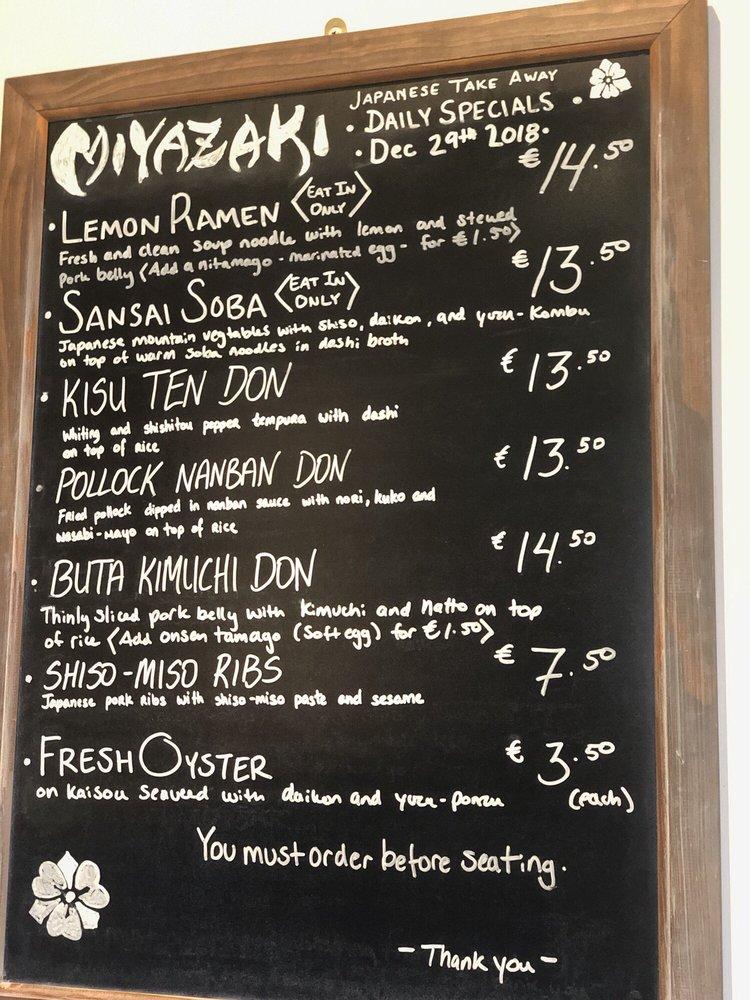 MIYAZAKI
JAPANESE TAKE AWAY
• DAILY SPECIALS •
• Dec 29th 2018 •
• LEMON RAMEN <EAT IN ONLY> € 14.50
Fresh and clean soup noodle with lemon and stewed
pork belly <Add a nitamago - marinated egg - for €1.50>
• SANSAI SOBA <EAT IN ONLY> € 13.50
Japanese mountain vegtables with shiso, daikon, and yuzu-kombu
on top of warm soba noodles in dashi broth
• KISU TEN DON € 13.50
Whiting and shishitou pepper tempura with dashi
on top of rice
• POLLOCK NANBAN DON € 13.50
Fried pollock dipped in nanban sauce with nori, kuko and
wasabi-mayo on top of rice
• BUTA KIMUCHI DON € 14.50
Thinly sliced pork belly with kimuchi and natto on top
of rice <Add onsen tamago (soft egg) for €1.50>
• SHISO-MISO RIBS € 7.50
Japanese pork ribs with shiso-miso paste and sesame
• FRESH OYSTER € 3.50
on kaisou seaweed with daikon and yuzu-ponzu (each)
You must order before seating.
- Thank you -